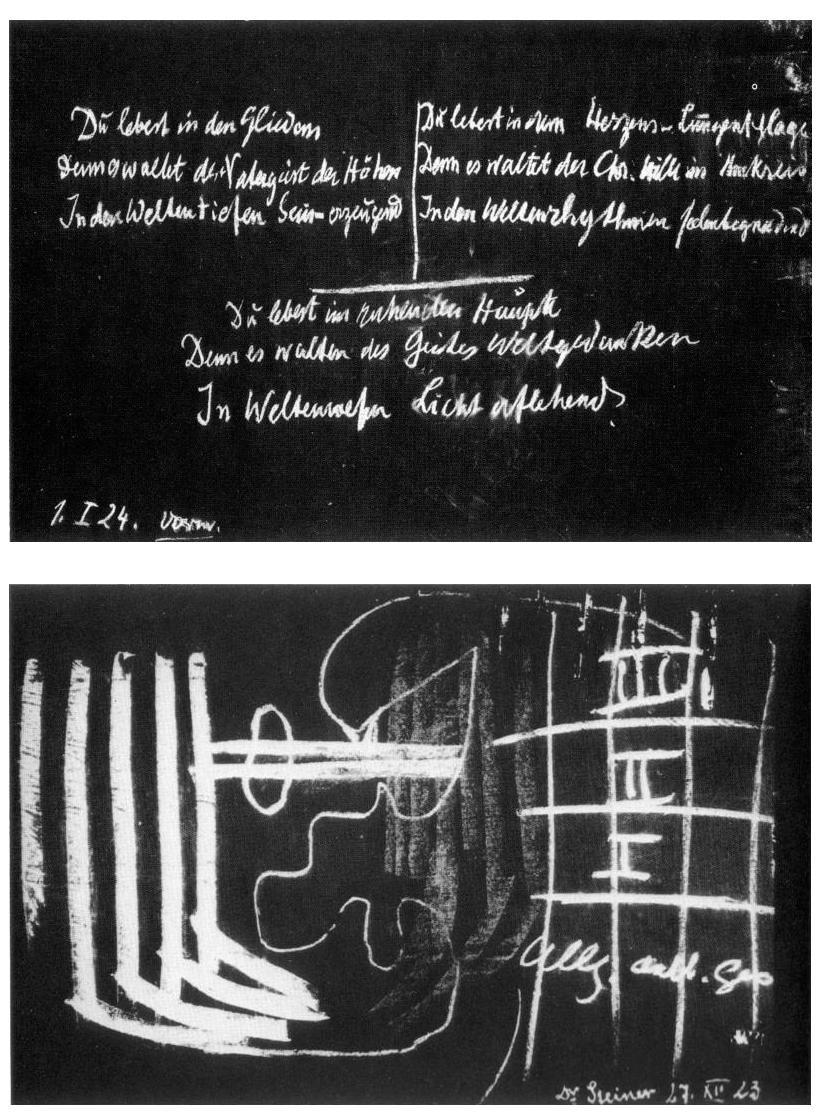 Du lebest in den Gliedern
Denn es waltet der Vatergeist der Höhen
In den Weltentiefen Sein-erzeugend
Du lebest in dem Herzens-Lungenschlage
Denn es waltet der Chr. Wille im Umkreis
In den Weltenrhythmen
Du lebest im ruhenden Haupte
Denn es walten des Geistes Weltgedanken
In Weltenwesen Licht erflehend
1. I 24. vorm.
III
II
I
Allg. anth. Ges
Dr Steiner 27. XII 23